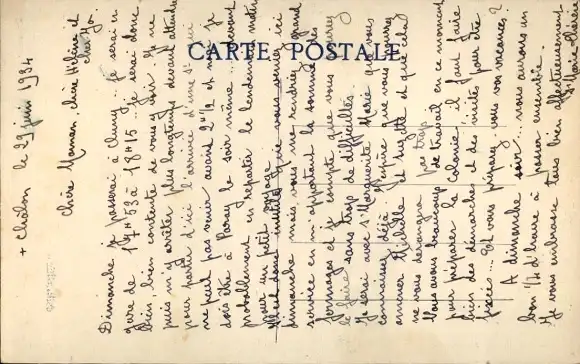 CARTE POSTALE
+ Chalon le 29 juin 1934
Chère Maman, chère Hélène et
cher Jo.
Dimanche je passerai à Cluny... Je serai en
gare de 17 H 53 à 18 H 15... je serai donc
bien, bien contente de vous y voir. Je ne
puis m'y arrêter plus longtemps devant attendre
pour partir d'ici l'arrivée d'une Sr qui
ne peut pas venir avant 2H 1/2 et moi je
dois être à Paray le soir même... devant
probablement en repartir le lendemain matin
pour un petit voyage
Il est donc inutile que vous veniez ici
dimanche mais vous me rendriez grand
service en m'apportant la somme les
fromages et je compte que vous pourrez
le faire sans trop de difficultés.
Je serai avec Sr Marguerite Marie que vous
connaissez déjà. J'espère que vous pourrez
amener Michelle et Suzette et que cela
ne vous dérangera pas trop
Nous avons beaucoup de travail en ce moment
pour préparer la Colonie: il faut faire
bien des démarches et des visites pour être
fixée... Et vous préparez vous vos vacances?
A dimanche soir... nous aurons un
bon 1/4 d'heure à passer ensemble.
Je vous embrasse tous bien affectueusement.
Sr Marie-Thérèse